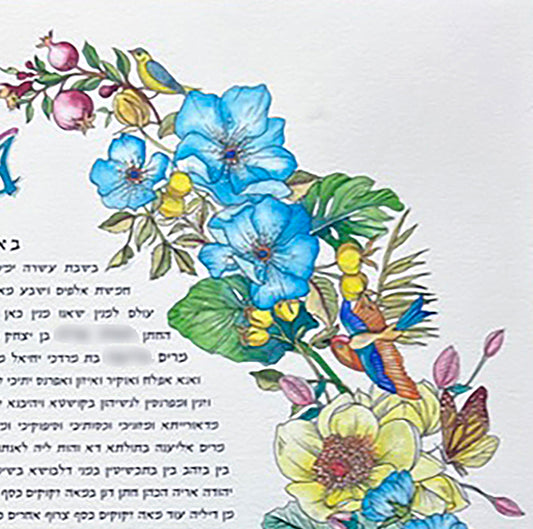 בשבת עשרה ימי
חמשת אלפים ושבע מא
עולם למנין שאנו מנין כאן
החתן בן יצחק
מרים בת מרדכי יחיאל
ואנא אפלח ואוקיר ואיזון ואפרנס יתיכי
וזנין ומפרנסין לנשיהון בקושטא ויהיבנא
מדאורייתא ומזוניכי וכסותיכי וסיפוקיכי ומ
מרים אליענה בתולתא דא והות ליה לאנתו
בין בזהב בין בתכשיטין במני דלבושא בשי
יהודה אריה הכהן חתן דנן במאה זקוקים כסף
מן דיליה עוד מאה זקוקים כסף צרוף אחרים